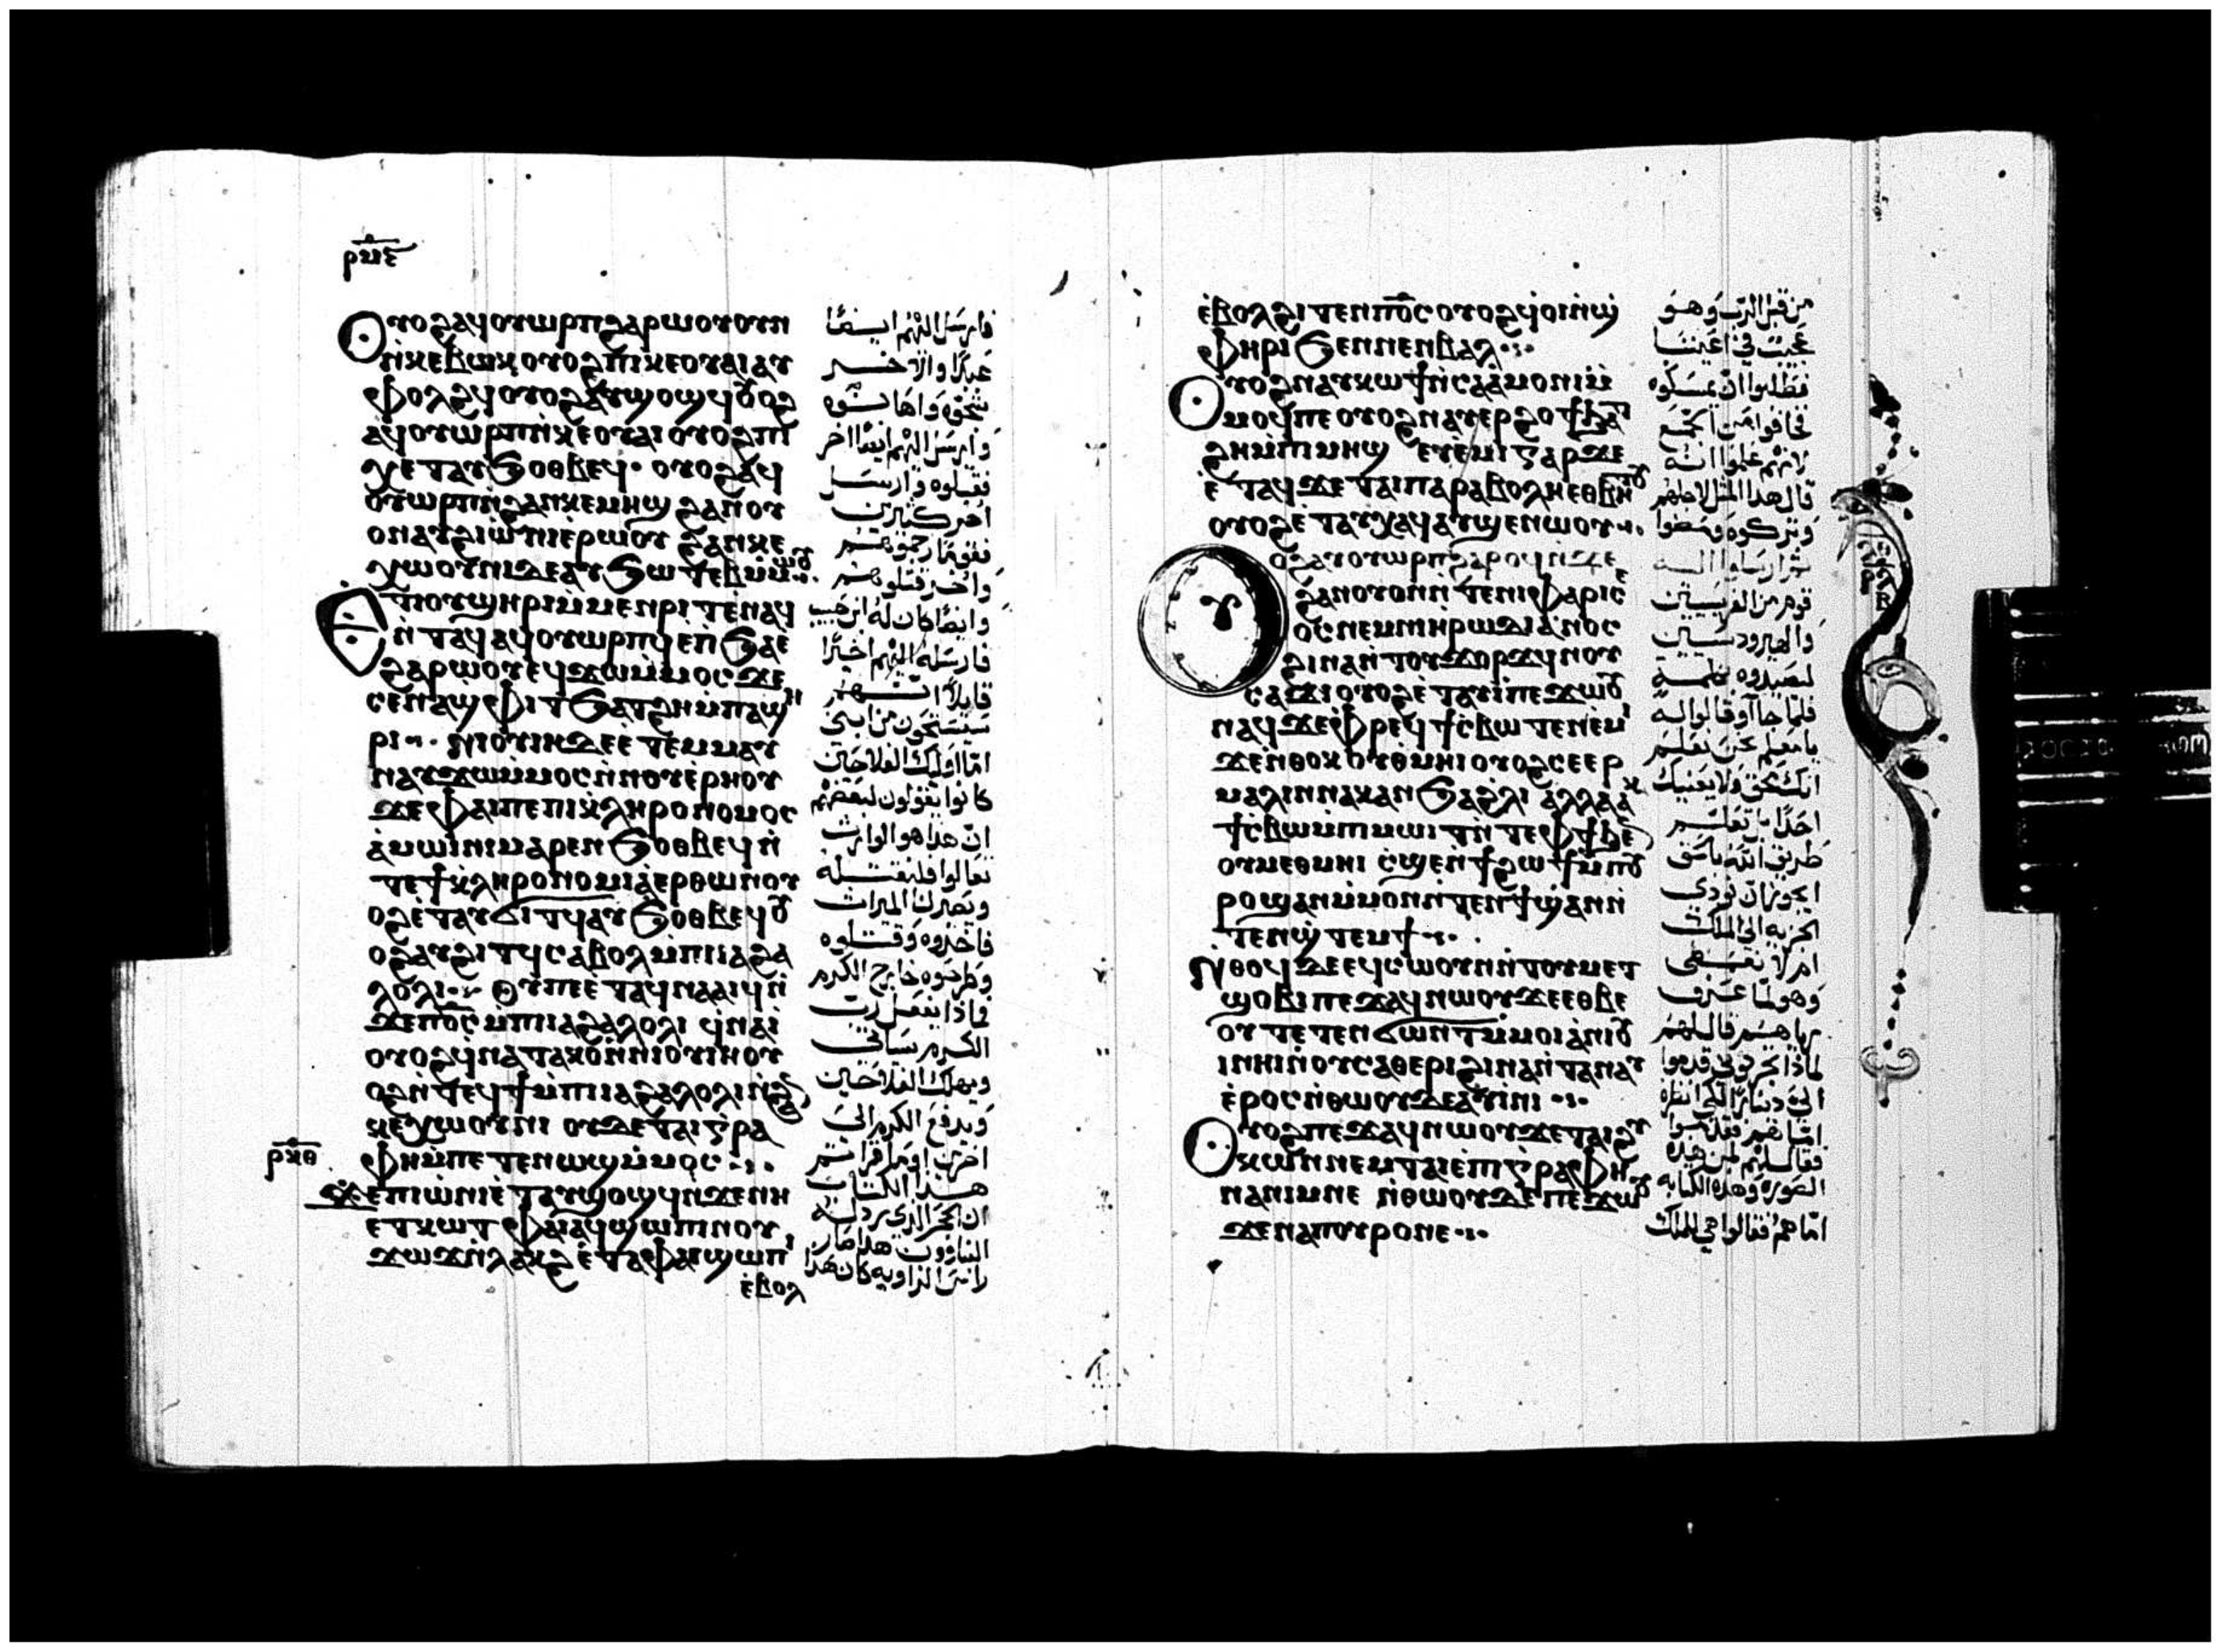 ⲣⲙⲋ
Ⲟⲩⲟϩ ⲁϥⲟⲩⲱⲣⲡ ϩⲁⲣⲱⲟⲩ ⲟⲩⲛ
ⲛ̀ⲕⲉⲃⲱⲕ ⲟⲩⲟϩ ⲡⲓⲕⲉⲟⲩⲁⲓ ⲁⲩ
ⲫⲟⲗϩϥ ⲟⲩⲟϩ ⲁⲩϣⲟϣϥ ⲟⲩⲟϩ
ⲁϥⲟⲩⲱⲣⲡ ⲛ̀ⲕⲉⲟⲩⲁⲓ ⲟⲩⲟϩ ⲡⲓ
ⲭⲉⲧ ⲁⲩϧⲟⲑⲃⲉϥ· ⲟⲩⲟϩ ⲁϥ
ⲟⲩⲱⲣⲡ ⲛ̀ϩⲁⲛⲕⲉⲙⲏϣ ϩⲁⲛⲟⲩ
ⲟⲛ ⲁⲩϩⲓⲱⲛⲓ ⲉ̀ⲣⲱⲟⲩ ϩⲁⲛⲕⲉ
ⲭⲱⲟⲩⲛⲓ ⲇⲉ ⲁⲩϧⲱⲧⲉⲃ ⲙ̀ⲙⲱⲟⲩ
Ⲉⲧⲓ ⲟⲩϣⲏⲣⲓ ⲙ̀ⲙⲉⲛⲣⲓⲧ ⲉ̀ⲛⲁϥ
ⲛ̀ⲧⲁϥ ⲁϥⲟⲩⲱⲣⲡϥ ⲉ̀ⲛ̀ϧⲁⲉ
ϩⲁⲣⲱⲟⲩ ⲉϥϫⲱⲙⲙⲟⲥ ϫⲉ
ⲥⲉⲛⲁϣⲫⲓⲧ ϧⲁⲧϩⲏ ⲙ̀ⲡⲁϣⲏ
ⲣⲓ ⲛⲓⲟⲩⲓⲏ ⲇⲉ ⲉ̀ⲧⲉⲙⲙⲁⲩ
ⲛⲁⲩϫⲱⲙ̀ⲙⲟⲥ ⲛ̀ⲛⲟⲩⲉ̀ⲣⲏⲟⲩ
ϫⲉ ⲫⲁⲓ ⲡⲉ ⲡⲓⲕ̀ⲗⲏⲣⲟⲛⲟⲙⲟⲥ
ⲁ̀ⲙⲱⲓⲛⲓ ⲙⲁⲣⲉⲛϧⲟⲑⲃⲉϥ ⲛ̀
ⲧⲉϯⲕ̀ⲗⲏⲣⲟⲛⲟⲙⲓⲁ ⲉⲣⲑⲱⲛ ⲟⲩ
ⲟϩ ⲉ̀ⲧⲁⲩϭⲓⲧϥ ⲁⲩϧⲟⲑⲃⲉϥ ⲟⲩ
ⲟϩ ⲁⲩϩⲓⲧϥ ⲥⲁⲃⲟⲗ ⲙ̀ⲡⲓⲓⲁϩⲁ
ⲗⲟⲗⲓ ⲟⲩ ⲡⲉ ⲉ̀ⲧⲁϥⲛⲁⲁⲓϥ ⲛ̀
ϫⲉⲡⲟ̅ⲥ ⲙ̀ⲡⲓⲓⲁϩⲁⲗⲟⲗⲓ ϥ̀ⲛⲁⲓ̀
ⲟⲩⲟϩ ϥ̀ⲛⲁⲧⲁⲕⲟ ⲛ̀ⲛⲓⲟⲩⲓⲏ ⲟⲩ
ⲟϩ ⲛ̀ⲧⲉϥϯ ⲙ̀ⲡⲓⲓⲁϩⲁⲗⲟⲗⲓ ⲛ̀ϩⲁⲛ
ⲕⲉⲭⲱⲟⲩⲛⲓ ⲟⲩⲇⲉ ⲧⲁⲓⲅ̀ⲣⲁ
ⲣⲕⲑ
ⲫⲏ ⲙ̀ⲡⲉⲧⲉⲛⲱϣ ⲙ̀ⲙⲟⲥ
ϫⲉ ⲡⲓⲱ̀ⲛⲓ ⲉ̀ⲧⲁⲩϣⲟϣϥ ⲛ̀ϫⲉⲛⲏ
ⲉⲧⲕⲱⲧ ⲫⲁⲓ ⲁϥϣⲱⲡⲓ ⲛⲟⲩ
ϫⲱϫ ⲛ̀ⲗⲁⲕϩ ⲉ̀ⲧⲁⲫⲁⲓ ϣⲱⲡⲓ
ⲉ̀ⲃⲟⲗ
فارسل اليهم ايضًا
عبدًا والآخر
شجّوه واهانوه
وارسل اليهم ايضًا اخر
فقتلوه وارسل
اخر كثيرين
فقومًا رجموهم
واخر قتلوهم
وايضًا كان له ابن حبيب
فارسله اليهم اخيرًا
قايلاً انهم
سيستحيون من ابني
امّا اوليك الفلاحين
كانوا يقولون لبعضهم
انّ هذا هو الوارث
تعالوا فلنقتله
ويصير لنا الميراث
فاخذوه وقتلوه
وطرحوه خارج الكرم
فماذا يفعل ربّ
الكرم ياتي
ويهلك الفلاحين
ويدفع الكرم الى
اخرين اوما قراتم
هذا الكتاب
ان الحجر الذي رذله
البناوون هذا صار
راس الزاويه كان هذا
ⲉ̀ⲃⲟⲗϩⲓⲧⲉⲛ ⲡⲟ̅ⲥ ⲟⲩⲟϩ ϥ̀ⲟⲓ ⲛ̀ϣ
ⲫⲏⲣⲓ ϧⲉⲛ ⲛⲉⲛⲃⲁⲗ
Ⲟⲩⲟϩ ⲛⲁⲩⲕⲱϯ ⲛ̀ⲥⲁⲁ̀ⲙⲟⲛⲓ ⲙ̀
ⲙⲟϥ ⲡⲉ ⲟⲩⲟϩ ⲛⲁⲩⲉⲣϩⲟϯ ϧⲁⲧ
ϩⲏ ⲙ̀ⲡⲓⲙⲏϣ ⲉⲩⲉ̀ⲙⲓ ⲅⲁⲣ ϫⲉ
ⲉ̀ⲧⲁϥϫⲉ ⲧⲁⲓⲡⲁⲣⲁⲃⲟⲗⲏ ⲉⲑⲃⲏⲧⲟⲩ
ⲟⲩⲟϩ ⲉ̀ⲧⲁⲩⲭⲁϥ ⲁⲩϣⲉⲛⲱⲟⲩ
Ⲟⲩⲟϩ ⲁⲩⲟⲩⲱⲣⲡ ϩⲁⲣⲟϥ ⲛ̀ϫⲉ
ϩⲁⲛⲟⲩⲟⲛ ⲛ̀ⲧⲉⲛⲓⲫⲁⲣⲓⲥⲉ
ⲟⲥ ⲛⲉⲙ ⲛⲓⲏⲣⲱⲇⲓⲁⲛⲟⲥ
ϩⲓⲛⲁ ⲛ̀ⲧⲟⲩϫⲟⲣϫϥ ⲛⲟⲩ
ⲥⲁϫⲓ ⲟⲩⲟϩ ⲉ̀ⲧⲁⲩⲓ̀ ⲡⲉϫⲱⲟⲩ
ⲛⲁϥ ϫⲉ ⲫⲣⲉϥϯⲥ̀ⲃⲱ ⲧⲉⲛⲉ̀ⲙⲓ
ϫⲉ ⲛ̀ⲑⲟⲕ ⲟⲩⲑⲙⲏⲓ ⲟⲩⲟϩ ⲥⲉⲉⲣ
ⲙⲉⲗⲓⲛ ⲛⲁⲕ ⲁⲛ ϧⲁϩ̀ⲗⲓ ⲁⲗⲗⲁ ⲕ̀
ϯⲥ̀ⲃⲱ ⲙ̀ⲡⲓⲙⲱⲓⲧ ⲛ̀ⲧⲉⲫϯ ϧⲉⲛ
ⲟⲩⲙⲉⲑⲙⲏⲓ ⲥ̀ϣⲉ ⲛ̀ϯϩⲱϯ ⲙ̀ⲡⲟⲩ
ⲣⲟ ϣⲁⲛ ⲙ̀ⲙⲟⲛ ⲛ̀ⲧⲉⲛϯ ϣⲁⲛ ⲛ̀
ⲧⲉⲛϣⲧⲉⲙϯ
Ⲛⲑⲟϥ ⲇⲉ ⲉϥⲥⲱⲟⲩⲛ ⲛ̀ⲧⲟⲩⲙⲉⲧ
ϣⲟⲃⲓ ⲡⲉϫⲁϥ ⲛⲱⲟⲩ ϫⲉ ⲉⲑⲃⲉ
ⲟⲩ ⲧⲉⲧⲉⲛϭⲱⲛⲧ ⲙ̀ⲙⲟⲓ ⲁ̀ⲛⲓⲟⲩ
ⲓⲛⲏⲓ ⲛ̀ⲟⲩⲥⲁⲑⲉⲣⲓ ϩⲓⲛⲁ ⲛ̀ⲧⲁⲛⲁⲩ
ⲉ̀ⲣⲟⲥ ⲛ̀ⲑⲱⲟⲩ ⲇⲉ ⲁⲩⲓ̀ⲛⲓ
Ⲟⲩⲟϩ ⲡⲉϫⲁϥ ⲛⲱⲟⲩ ϫⲉ ⲧⲁⲓϩⲩ
ⲕⲱⲛ ⲛⲉⲙ ⲧⲁⲓⲉ̀ⲡⲓⲅ̀ⲣⲁⲫⲏ
ⲛⲁⲛⲓⲙ ⲛⲉ ⲛ̀ⲑⲱⲟⲩ ⲇⲉ ⲡⲉϫⲱⲟⲩ
ϫⲉ ⲛⲁⲡⲟⲩⲣⲟ ⲛⲉ
من قبل الربّ وهو
عجيب في اعيننا
فطلبوا انّ يمسكوه
فخافوا من الجمع
لانهم علموا انه
قال هذا المثل لاجلهم
وتركوه ومضوا
ثم ارسلوا اليه
قوم من الفريسيين
والهيرودسيين
ليصيدوه بكلمة
فلمّا جاآو قالوا له
يا معلم نحن نعلم
انك محق ولا يعنيك
احدًا بل تعلّم
طريق الله بالحق
ايجوز ان نودي
الجزيه الى الملك
ام لا نعطي
وهو لمّا عرف
رياهم قال لهم
لماذا تجربوني قدموا
اليّ دينارًا لكي انظره
امّا هم فقدموا
فقال لهم لمن هذه
الصوره وهذه الكتابه
امّا هم فقالوا هي للملك